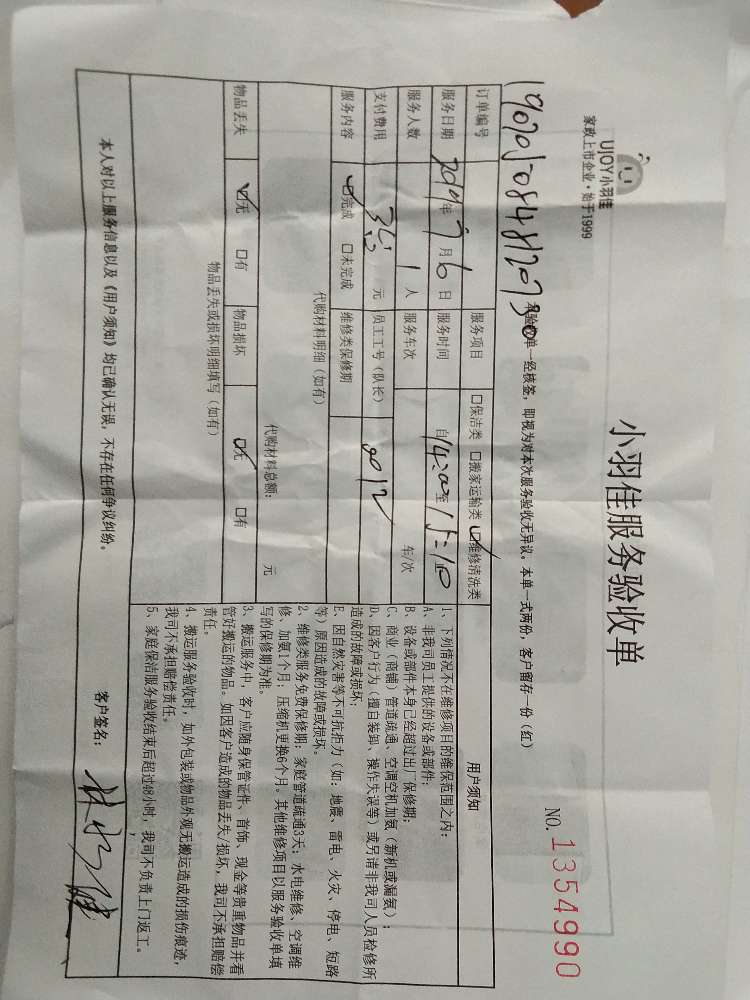 UJOY小羽佳
家政上市企业·始于1999
小羽佳服务验收单
NO. 1354990
本验收单一经核签，即视为对本次服务验收无异议。本单一式两份，客户留存一份（红）
订单编号
服务项目 □保洁类 □搬家运输类 ☑维修清洗类
服务日期 2019年9月6日 服务时间 自14:00至15:10
服务人数 1人 服务车次 车/次
支付费用 元 员工工号（队长） 9012
服务内容 ☑完成 □未完成 维修类保修期
代购材料明细（如有）
代购材料总额： 元
物品丢失 ☑无 □有 物品损坏 ☑无 □有
物品丢失或损坏明细填写（如有）
用户须知
1、下列情况不在维修项目的维保范围之内：
A、非我司员工提供的设备或部件；
B、设备或部件本身已经超过出厂保修期；
C、商业（商铺）管道疏通、空调空机加氨（新机或漏氨）；
D、因客户行为（擅自装卸、操作失误等）或另请非我司人员检修所
造成的故障或损坏；
E、因自然灾害等不可抗拒力（如：地震、雷电、火灾、停电、短路
等）原因造成的故障或损坏。
2、维修类服务免费保修期：家庭管道疏通3天；水电维修、空调维
修、加氨1个月；压缩机更换6个月。其他维修项目以服务验收单填
写的保修期为准。
3、搬运服务中，客户应随身保管证件、首饰、现金等贵重物品并看
管好搬运的物品。如因客户造成的物品丢失/损坏，我司不承担赔偿
责任。
4、搬运服务验收时，如外包装或物品外观无搬运造成的损伤痕迹，
我司不承担赔偿责任。
5、家庭保洁服务验收结束后超过48小时，我司不负责上门返工。
本人对以上服务信息以及《用户须知》均已确认无误，不存在任何争议纠纷。
客户签名：